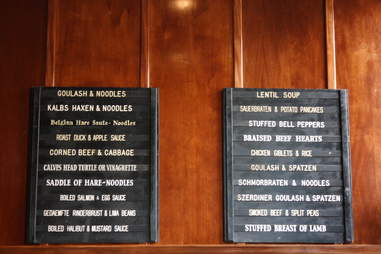 GOULASH & NOODLES
KALBS HAXEN & NOODLES
Belgian Hare Saute - Noodles
ROAST DUCK & APPLE SAUCE
CORNED BEEF & CABBAGE
CALVES HEAD TURTLE OR VINAGRETTE
SADDLE OF HARE-NOODLES
BOILED SALMON & EGG SAUCE
GEDAEMFTE RINDERBRUST & LIMA BEANS
BOILED HALIBUT & MUSTARD SAUCE
LENTIL SOUP
SAUERBRATEN & POTATO PANCAKES
STUFFED BELL PEPPERS
BRAISED BEEF HEARTS
CHICKEN GIBLETS & RICE
GOULASH & SPATZEN
SCHMORBRATEN & NOODLES
SZERDINER GOULASH & SPATZEN
SMOKED BEEF & SPLIT PEAS
STUFFED BREAST OF LAMB